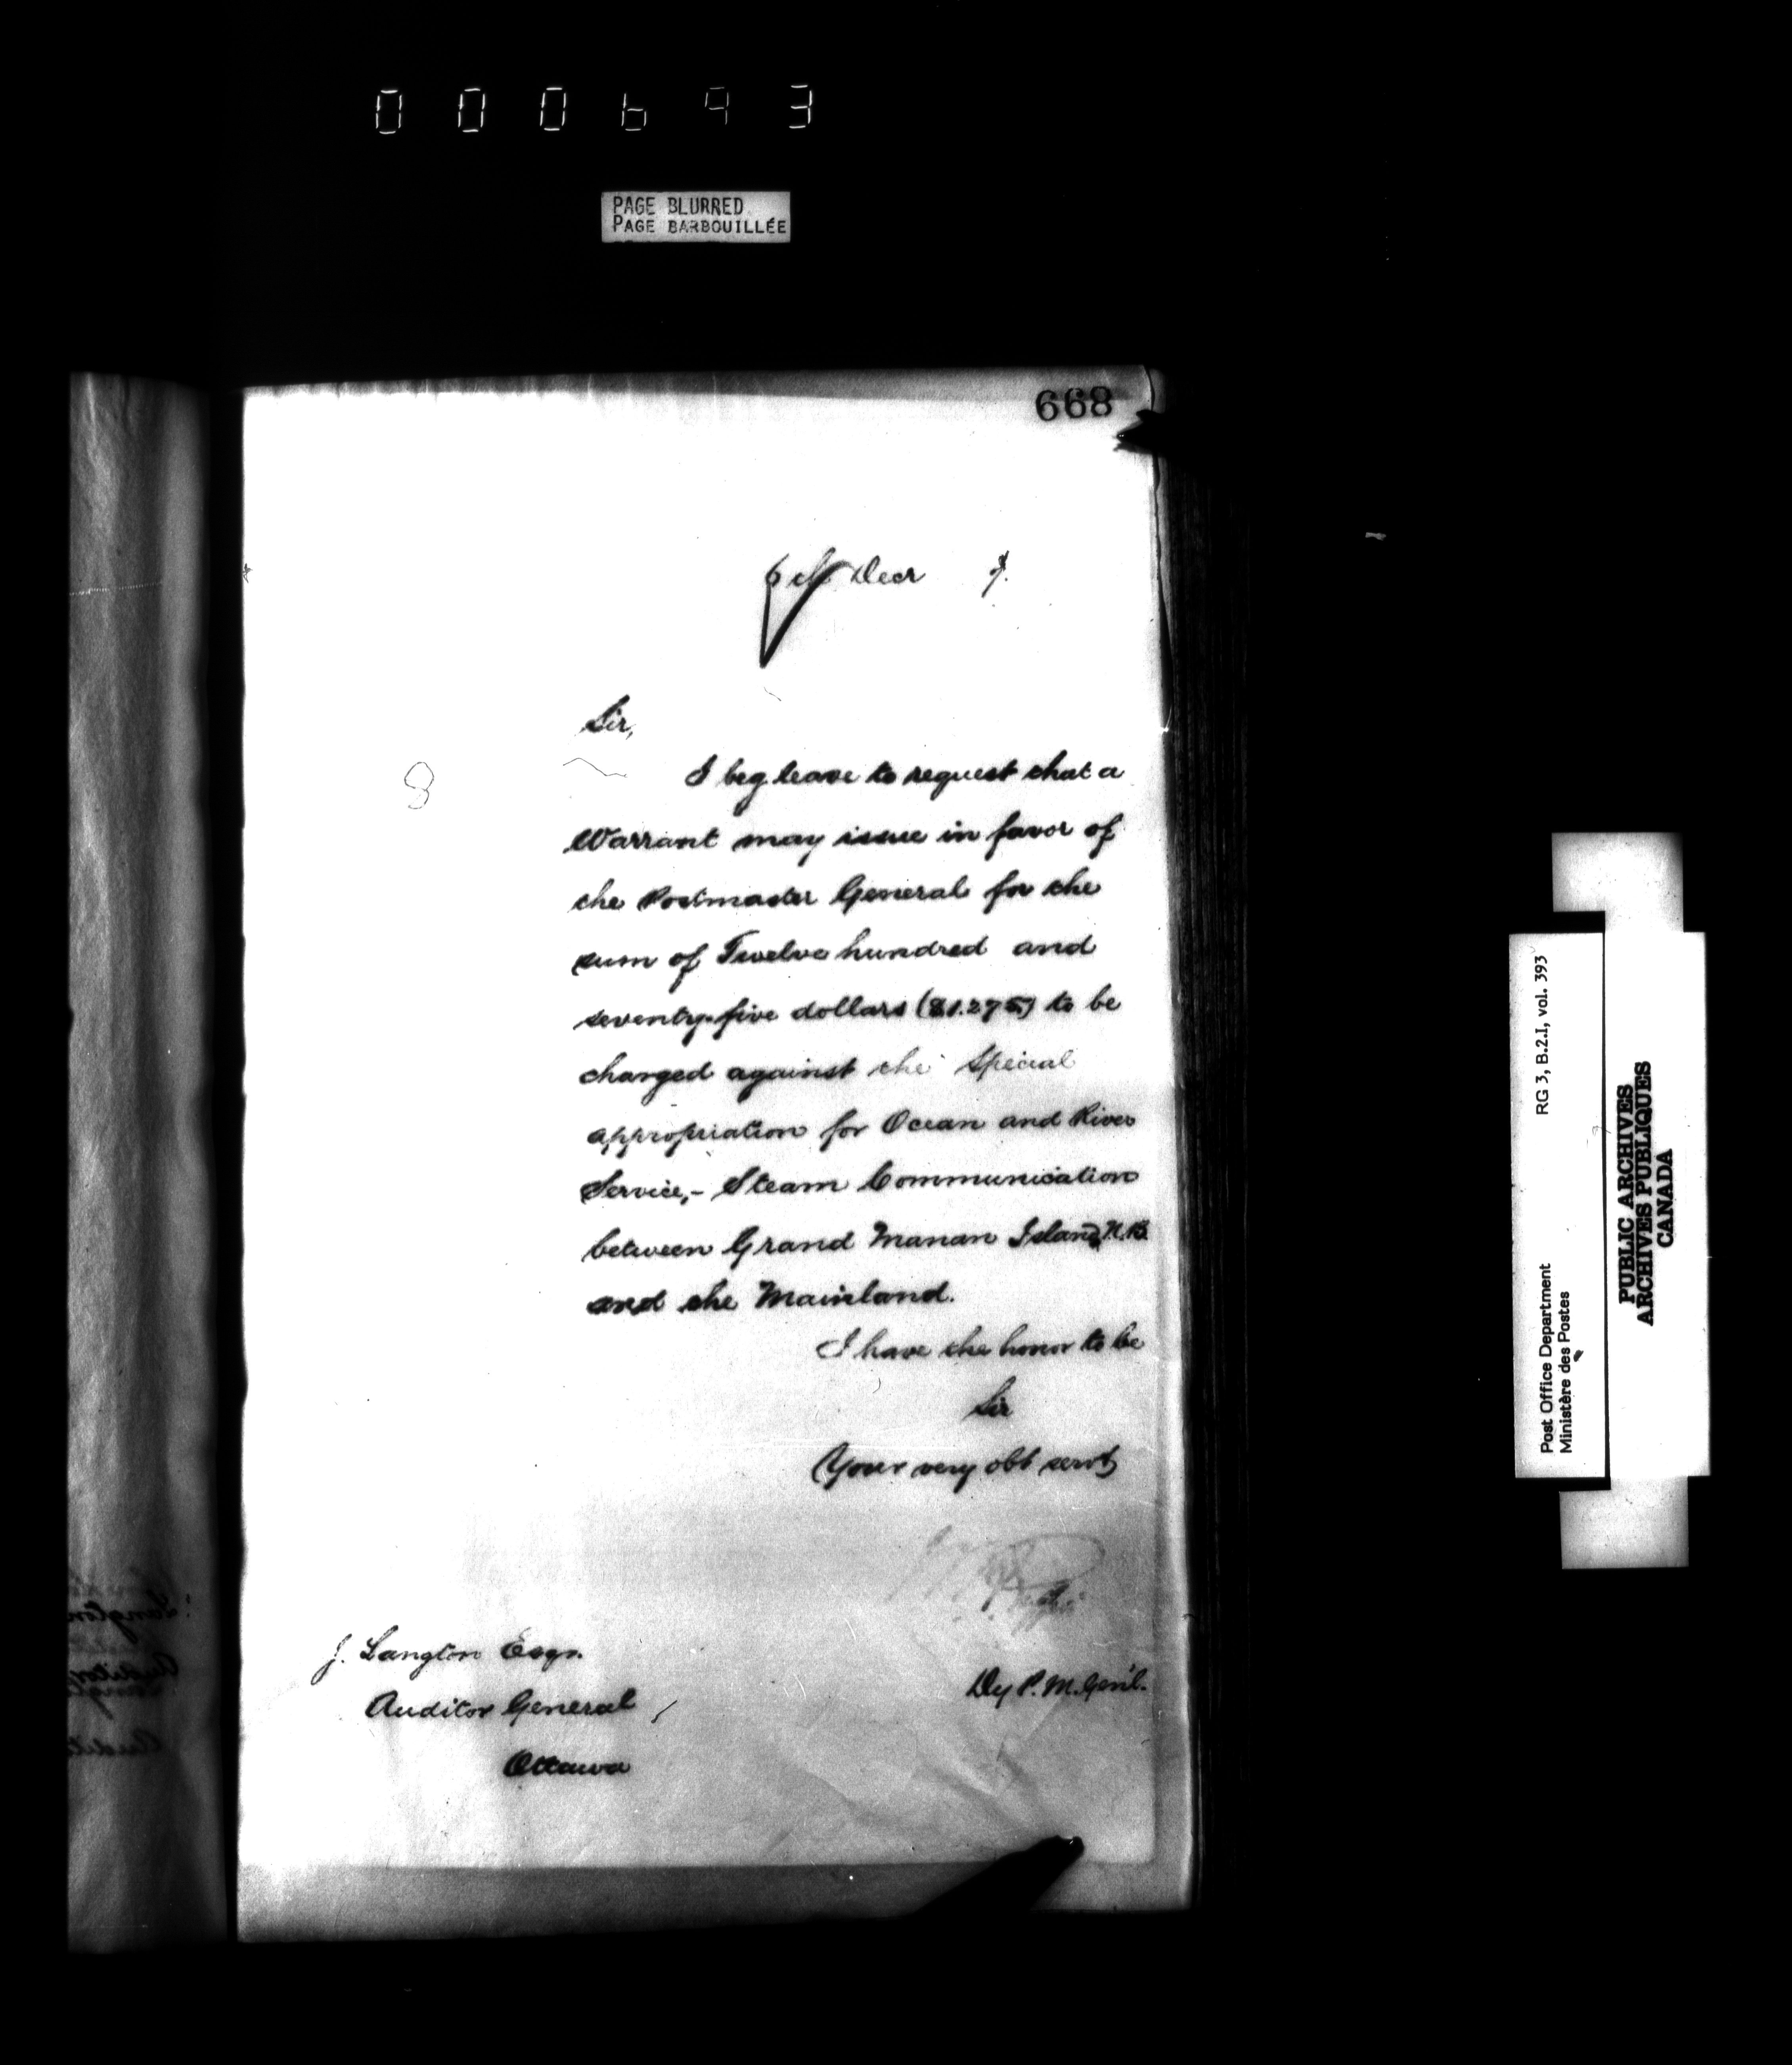 000693
PAGE BLURRED
PAGE BARBOUILLÉE
668
6th Decr 7.
Sir,
I beg leave to request that a
Warrant may issue in favor of
the Postmaster General for the
sum of Twelve hundred and
seventy-five dollars ($1.275) to be
charged against the Special
appropriation for Ocean and River
Service,- Steam Communication
between Grand Manan Island, N.B.
and the Mainland.
I have the honor to be
Sir
Your very obt servt
Dy P. M. Gen'l.
J. Langton Esqr.
Auditor General,
Ottawa
RG 3, B.2.I, vol. 393
Post Office Department
Ministère des Postes
PUBLIC ARCHIVES
ARCHIVES PUBLIQUES
CANADA